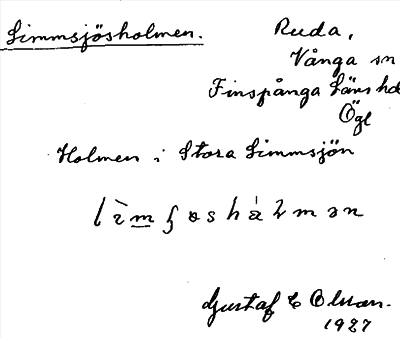 Limmsjösholmen.
Ruda,
Vånga sn
Finspånga Läns hd
Ögl
Holmen i Stora Limmsjön
Gustaf E Olsson.
1927